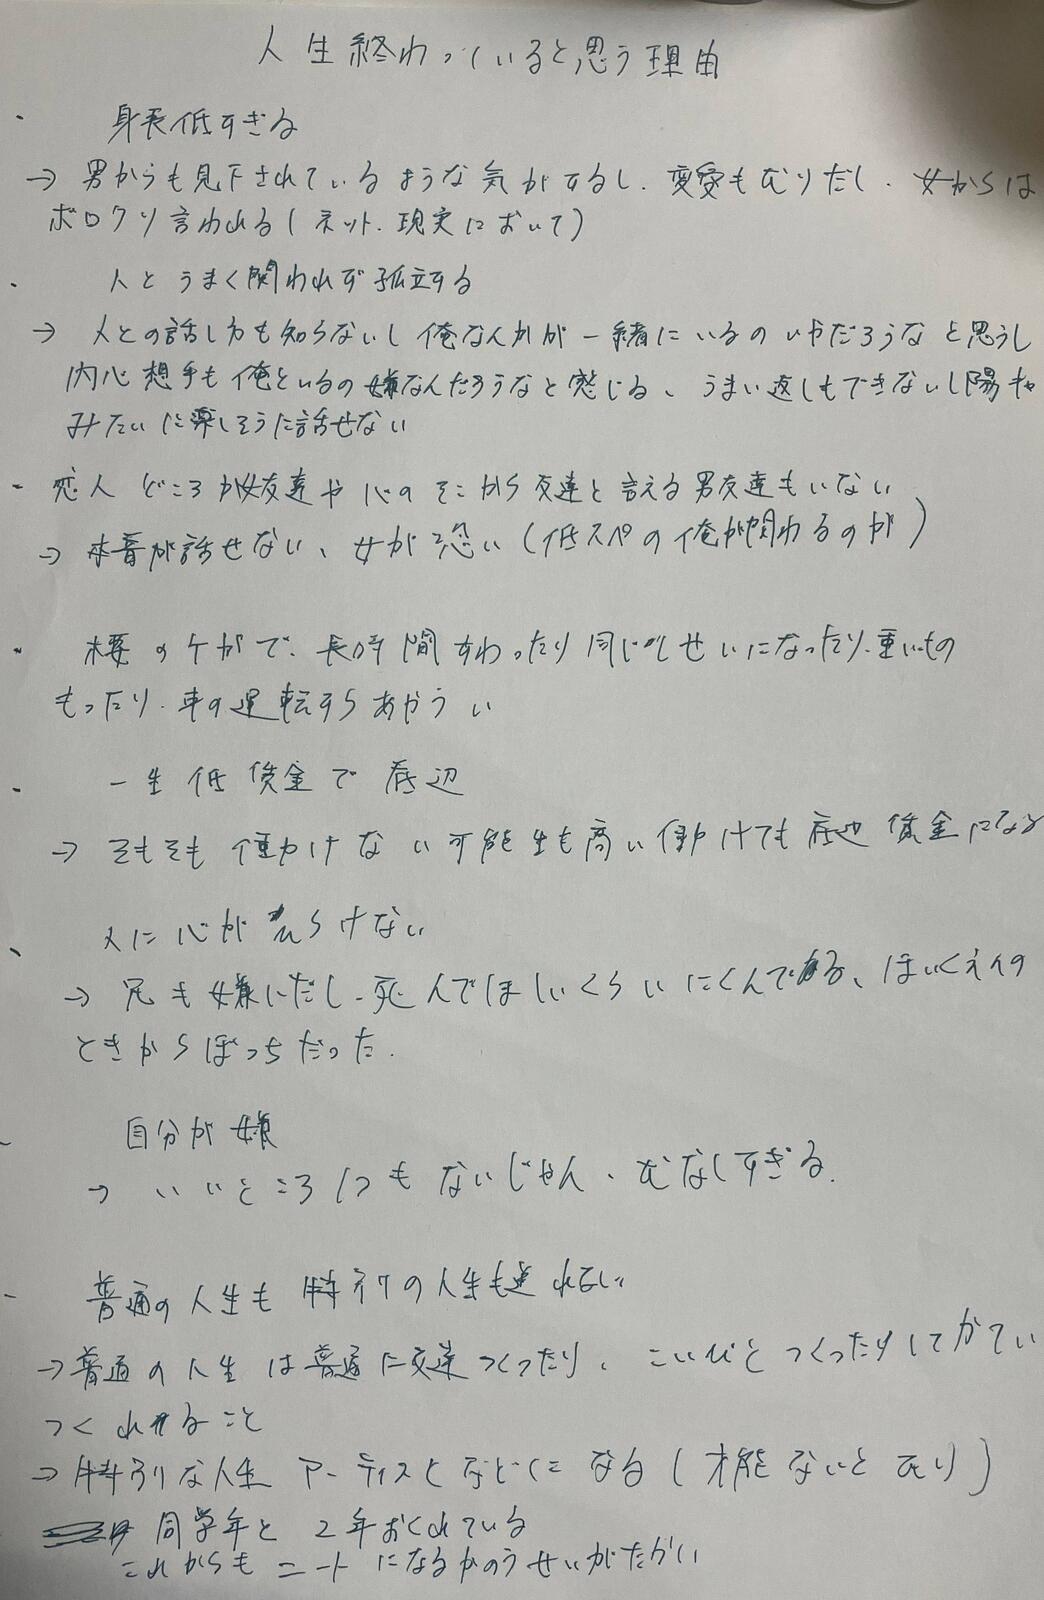 人生終わっていると思う理由
・ 身長低すぎる
→ 男からも見下されているような気がするし、恋愛もむりだし、女からは
ボロクソ言われる(ネット、現実において)
・ 人とうまく関われず孤立する
→ 人との話し方も知らないし俺なんかが一緒にいるのいやだろうなと思うし
内心想手も俺といるの嫌なんだろうなと感じる、うまい返しもできないし陽キャ
みたいに楽しそうに話せない
- 恋人どころか女友達や心のそこから友達と言える男友達もいない
→ 本音が話せない、女が恐い(低スペの俺が関わるのが)
・ 腰のケガで、長時間すわったり同じしせいになったり、重いもの
もったり、車の運転すらあやうい
・ 一生低賃金で底辺
→ そもそも働けない可能生も高い働けても底辺賃金になる
、 人に心がひらけない
→ 兄も嫌いだし、死んでほしいくらいにくんでる、ほいくえんの
ときからぼっちだった.
- 自分が嫌
→ いいところ1つもないじゃん、むなしすぎる.
- 普通の人生も特別の人生も送れない
→ 普通の人生は普通に友達つくったり、こいびとつくったりしてかてい
つくれること
→ 特別な人生 アーティストなどになる(才能ないとむり)
同学年と2年おくれている
これからもニートになるかのうせいがたかい